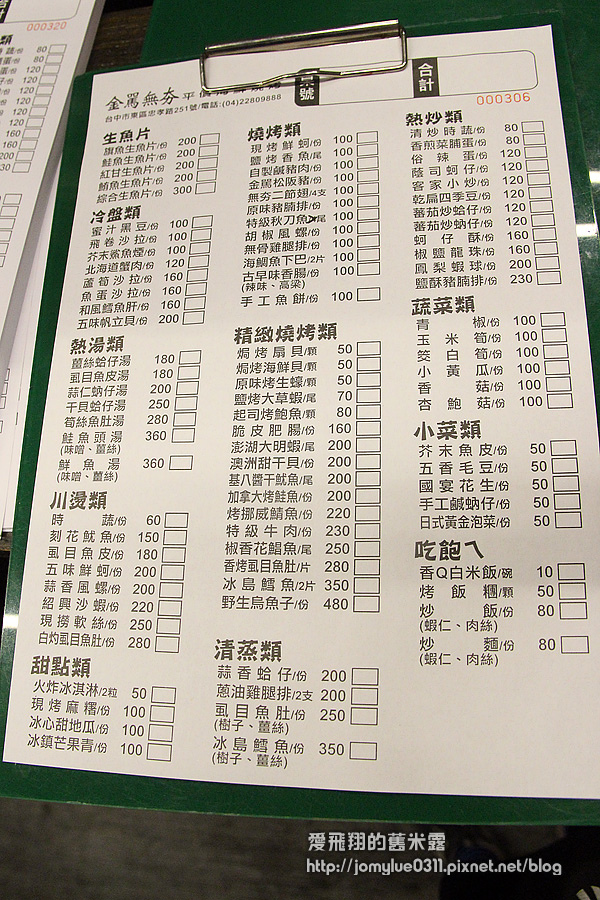 合計
000320
金罵無夯平價海鮮燒烤
台中市東區忠孝路251號/電話:(04)22809888
號
合計
000306
生魚片
旗魚生魚片/份 200
鮭魚生魚片/份 200
紅甘生魚片/份 200
鮪魚生魚片/份 200
綜合生魚片/份 300
冷盤類
蜜汁黑豆/份 100
飛卷沙拉/份 100
芥末鯊魚煙/份 100
北海道蟹肉/份 120
蘆筍沙拉/份 160
魚蛋沙拉/份 160
和風鱈魚肝/份 160
五味帆立貝/份 200
熱湯類
薑絲蛤仔湯 180
虱目魚皮湯 180
蒜仁蚋仔湯 200
干貝蛤仔湯 250
筍絲魚肚湯 280
鮭魚頭湯 360
(味噌、薑絲)
鮮魚湯 360
(味噌、薑絲)
川燙類
時蔬/份 60
刻花魷魚/份 150
虱目魚皮/份 180
五味鮮蚵/份 200
蒜香風螺/份 200
紹興沙蝦/份 220
現撈軟絲/份 250
白灼虱目魚肚/份 280
甜點類
火炸冰淇淋/2粒 50
現烤麻糬/份 100
冰心甜地瓜/份 100
冰鎮芒果青/份 100
燒烤類
現烤鮮蚵/份 100
鹽烤香魚/尾 100
自製鹹豬肉/份 100
金罵松阪豬/份 100
無夯二節翅/4支 100
原味豬腩排/份 100
特級秋刀魚/尾 100
胡椒風螺/份 100
無骨雞腿排/份 100
海鯛魚下巴/2片 100
古早味香腸/份 100
(辣味、高粱)
手工魚餅/份 100
精緻燒烤類
焗烤扇貝/顆 50
焗烤海鮮貝/顆 50
原味烤生蠔/顆 50
鹽烤大草蝦/尾 70
起司烤鮑魚/顆 80
脆皮肥腸/份 160
澎湖大明蝦/尾 200
澳洲甜干貝/份 200
基八醬干魷魚/尾 200
加拿大烤鮭魚/份 200
烤挪威鯖魚/份 220
特級牛肉/份 230
椒香花鯧魚/尾 250
香烤虱目魚肚/片 250
冰島鱈魚/2片 350
野生烏魚子/份 480
清蒸類
蒜香蛤仔/份 200
蔥油雞腿排/2支 200
虱目魚肚/份 250
(樹子、薑絲)
冰島鱈魚/份 350
(樹子、薑絲)
熱炒類
清炒時蔬/份 80
香煎菜脯蛋/份 80
俗辣蛋/份 120
蔭司蚵仔/份 120
客家小炒/份 120
乾扁四季豆/份 120
蕃茄炒蛤仔/份 120
蕃茄炒蚋仔/份 120
蚵仔酥/份 160
椒鹽龍珠/份 160
鳳梨蝦球/份 200
鹽酥豬腩排/份 230
蔬菜類
青椒/份 100
玉米筍/份 100
筊白筍/份 100
小黃瓜/份 100
香菇/份 100
杏鮑菇/份 100
小菜類
芥末魚皮/份 50
五香毛豆/份 50
國宴花生/份 50
手工鹹蚋仔/份 50
日式黃金泡菜/份 50
吃飽ㄟ
香Q白米飯/碗 10
烤飯糰/顆 50
炒飯/份 80
(蝦仁、肉絲)
炒麵/份 80
(蝦仁、肉絲)
愛飛翔的舊米露
http://jomylue0311.pixnet.net/blog